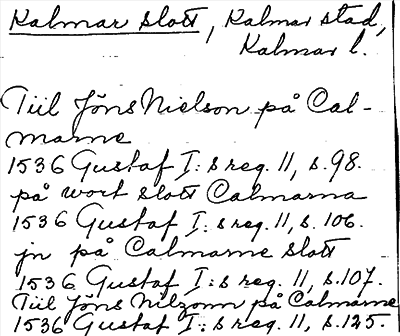 Kalmar slott, Kalmar stad,
Kalmar l.
Tiil Jöns Nielson på Cal-
marne
1536 Gustaf I:s reg. 11, s. 98.
på wort slott Calmarna
1536 Gustaf I:s reg. 11, s. 106.
jn på Calmarne slott
1536 Gustaf I:s reg. 11, s. 107.
Tiil Jöns Nilzonn på Calmarne
1536 Gustaf I:s reg. 11, s. 125.